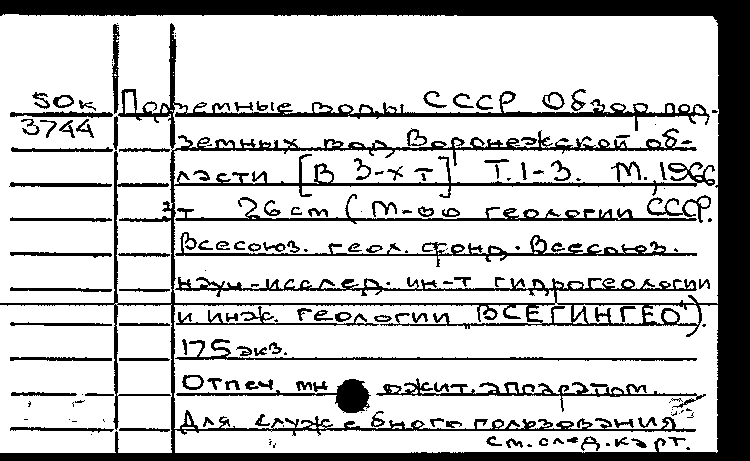 50к Подземные воды СССР Обзор под-
3744
земных вод Воронежской об-
ласти [В 3-х т] Т.1-3. М., 1966.
3 т. 26 см (М-во геологии СССР.
Всесоюз. геол. фонд. Всесоюз.
науч-исслед. ин-т гидрогеологии
и инж. геологии „ВСЕГИНГЕО").
175 экз.
Отпеч. мн ожит. аппаратом.
Для служебного пользования
см. след. карт.